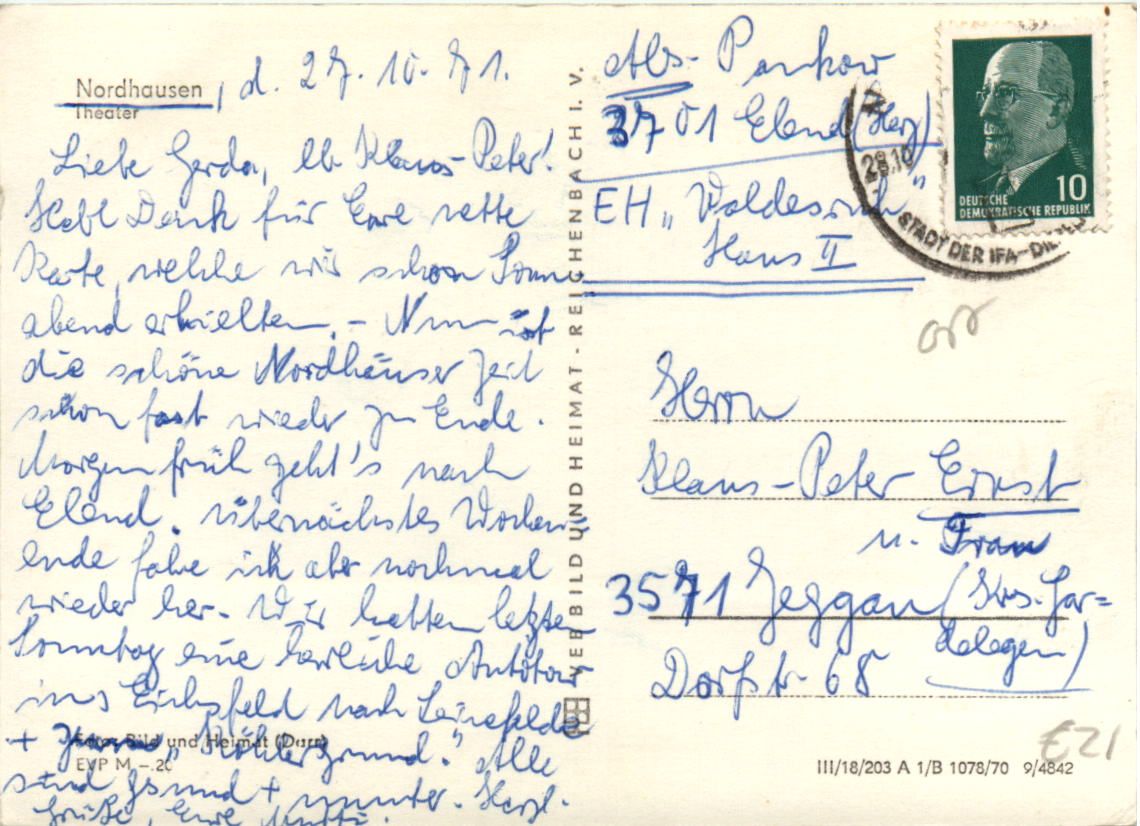 Nordhausen, d. 27.10.71.
Theater
Liebe Gerda, lb Klaus-Peter!
Habt Dank für Eure nette
Karte, welche wir schon Sonn
abend erhielten. - Nun ist
die schöne Nordhäuser Zeit
schon fast wieder zu Ende.
Morgen früh geht's nach
Elend. Übernächstes Wochen
ende fahre ich aber nochmal
wieder her. Wir hatten letzten
Sonntag eine herrliche Autotour
ins Eichsfeld nach Leinefelde
+ Köhlergrund." Alle
sind gsund + munter. Herzl.
Grüße, Eure Mutti.
Foto: Bild und Heimat (Darr)
EVP M -.20
VEB BILD UND HEIMAT - REICHENBACH I. V.
Abs. Pankow
3701 Elend (Harz)
EH „Waldesruh"
Haus II
DEUTSCHE
DEMOKRATISCHE REPUBLIK
10
28.10
STADT DER IFA-DIE
Herrn
Klaus-Peter Ernst
u. Frau
3571 Jeggau (Krs. Gar=
delegen)
Dorfstr 68
III/18/203 A 1/B 1078/70 9/4842
€21